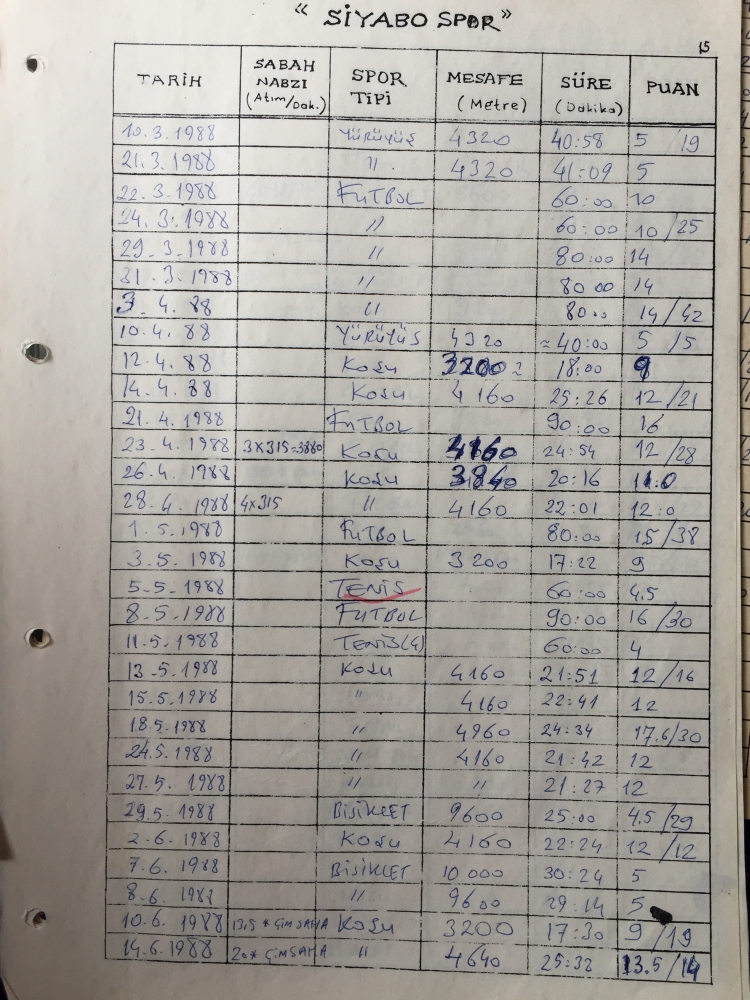 “ SİYABO SPOR”
15
TARİH SABAH NABZI (Atım/Dak.) SPOR TİPİ MESAFE (Metre) SÜRE (Dakika) PUAN
10.3.1988 YÜRÜYÜŞ 4320 40:58 5 /19
21.3.1988 " 4320 41:09 5
22.3.1988 FUTBOL 60:00 10
24.3.1988 " 60:00 10/25
29.3.1988 " 80:00 14
31.3.1988 " 80 00 14
3.4.88 " 80:00 14/42
10.4.88 YÜRÜYÜŞ 4320 ≈40:00 5 /5
12.4.88 KOŞU 3200 18:00 9
14.4.88 KOŞU 4160 25:26 12/21
21.4.1988 FUTBOL 90:00 16
23.4.1988 3x315=3880 KOŞU 4160 24:54 12/28
26.4.1988 KOŞU 3840 20:16 11.0
28.4.1988 4x315 " 4160 22:01 12:0
1.5.1988 FUTBOL 80:00 15/38
3.5.1988 KOŞU 3200 17:22 9
5.5.1988 TENİS 60:00 4.5
8.5.1988 FUTBOL 90:00 16/30
11.5.1988 TENİS(4) 60:00 4
13.5.1988 KOŞU 4160 21:51 12/16
15.5.1988 " 4160 22:41 12
18.5.1988 " 4960 24:34 17.6/30
24.5.1988 " 4160 21:42 12
27.5.1988 " " 21:27 12
29.5.1988 BİSİKLET 9600 25:00 4.5/29
2.6.1988 KOŞU 4160 22:24 12/12
7.6.1988 BİSİKLET 10 000 30:24 5
8.6.1988 " 9600 29:14 5
10.6.1988 13,5 * ÇİM SAHA KOŞU 3200 17:30 9/19
14.6.1988 20* ÇİM SAHA " 4640 25:32 13.5/14